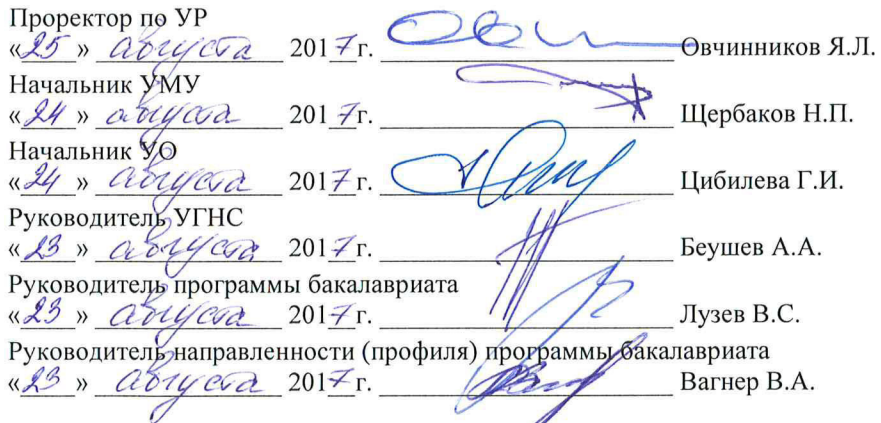 Проректор по УР
«25» августа 2017 г. Овчинников Я.Л.
Начальник УМУ
«24» августа 2017 г. Щербаков Н.П.
Начальник УО
«24» августа 2017 г. Цибилева Г.И.
Руководитель УГНС
«23» августа 2017 г. Беушев А.А.
Руководитель программы бакалавриата
«23» августа 2017 г. Лузев В.С.
Руководитель направленности (профиля) программы бакалавриата
«23» августа 2017 г. Вагнер В.А.